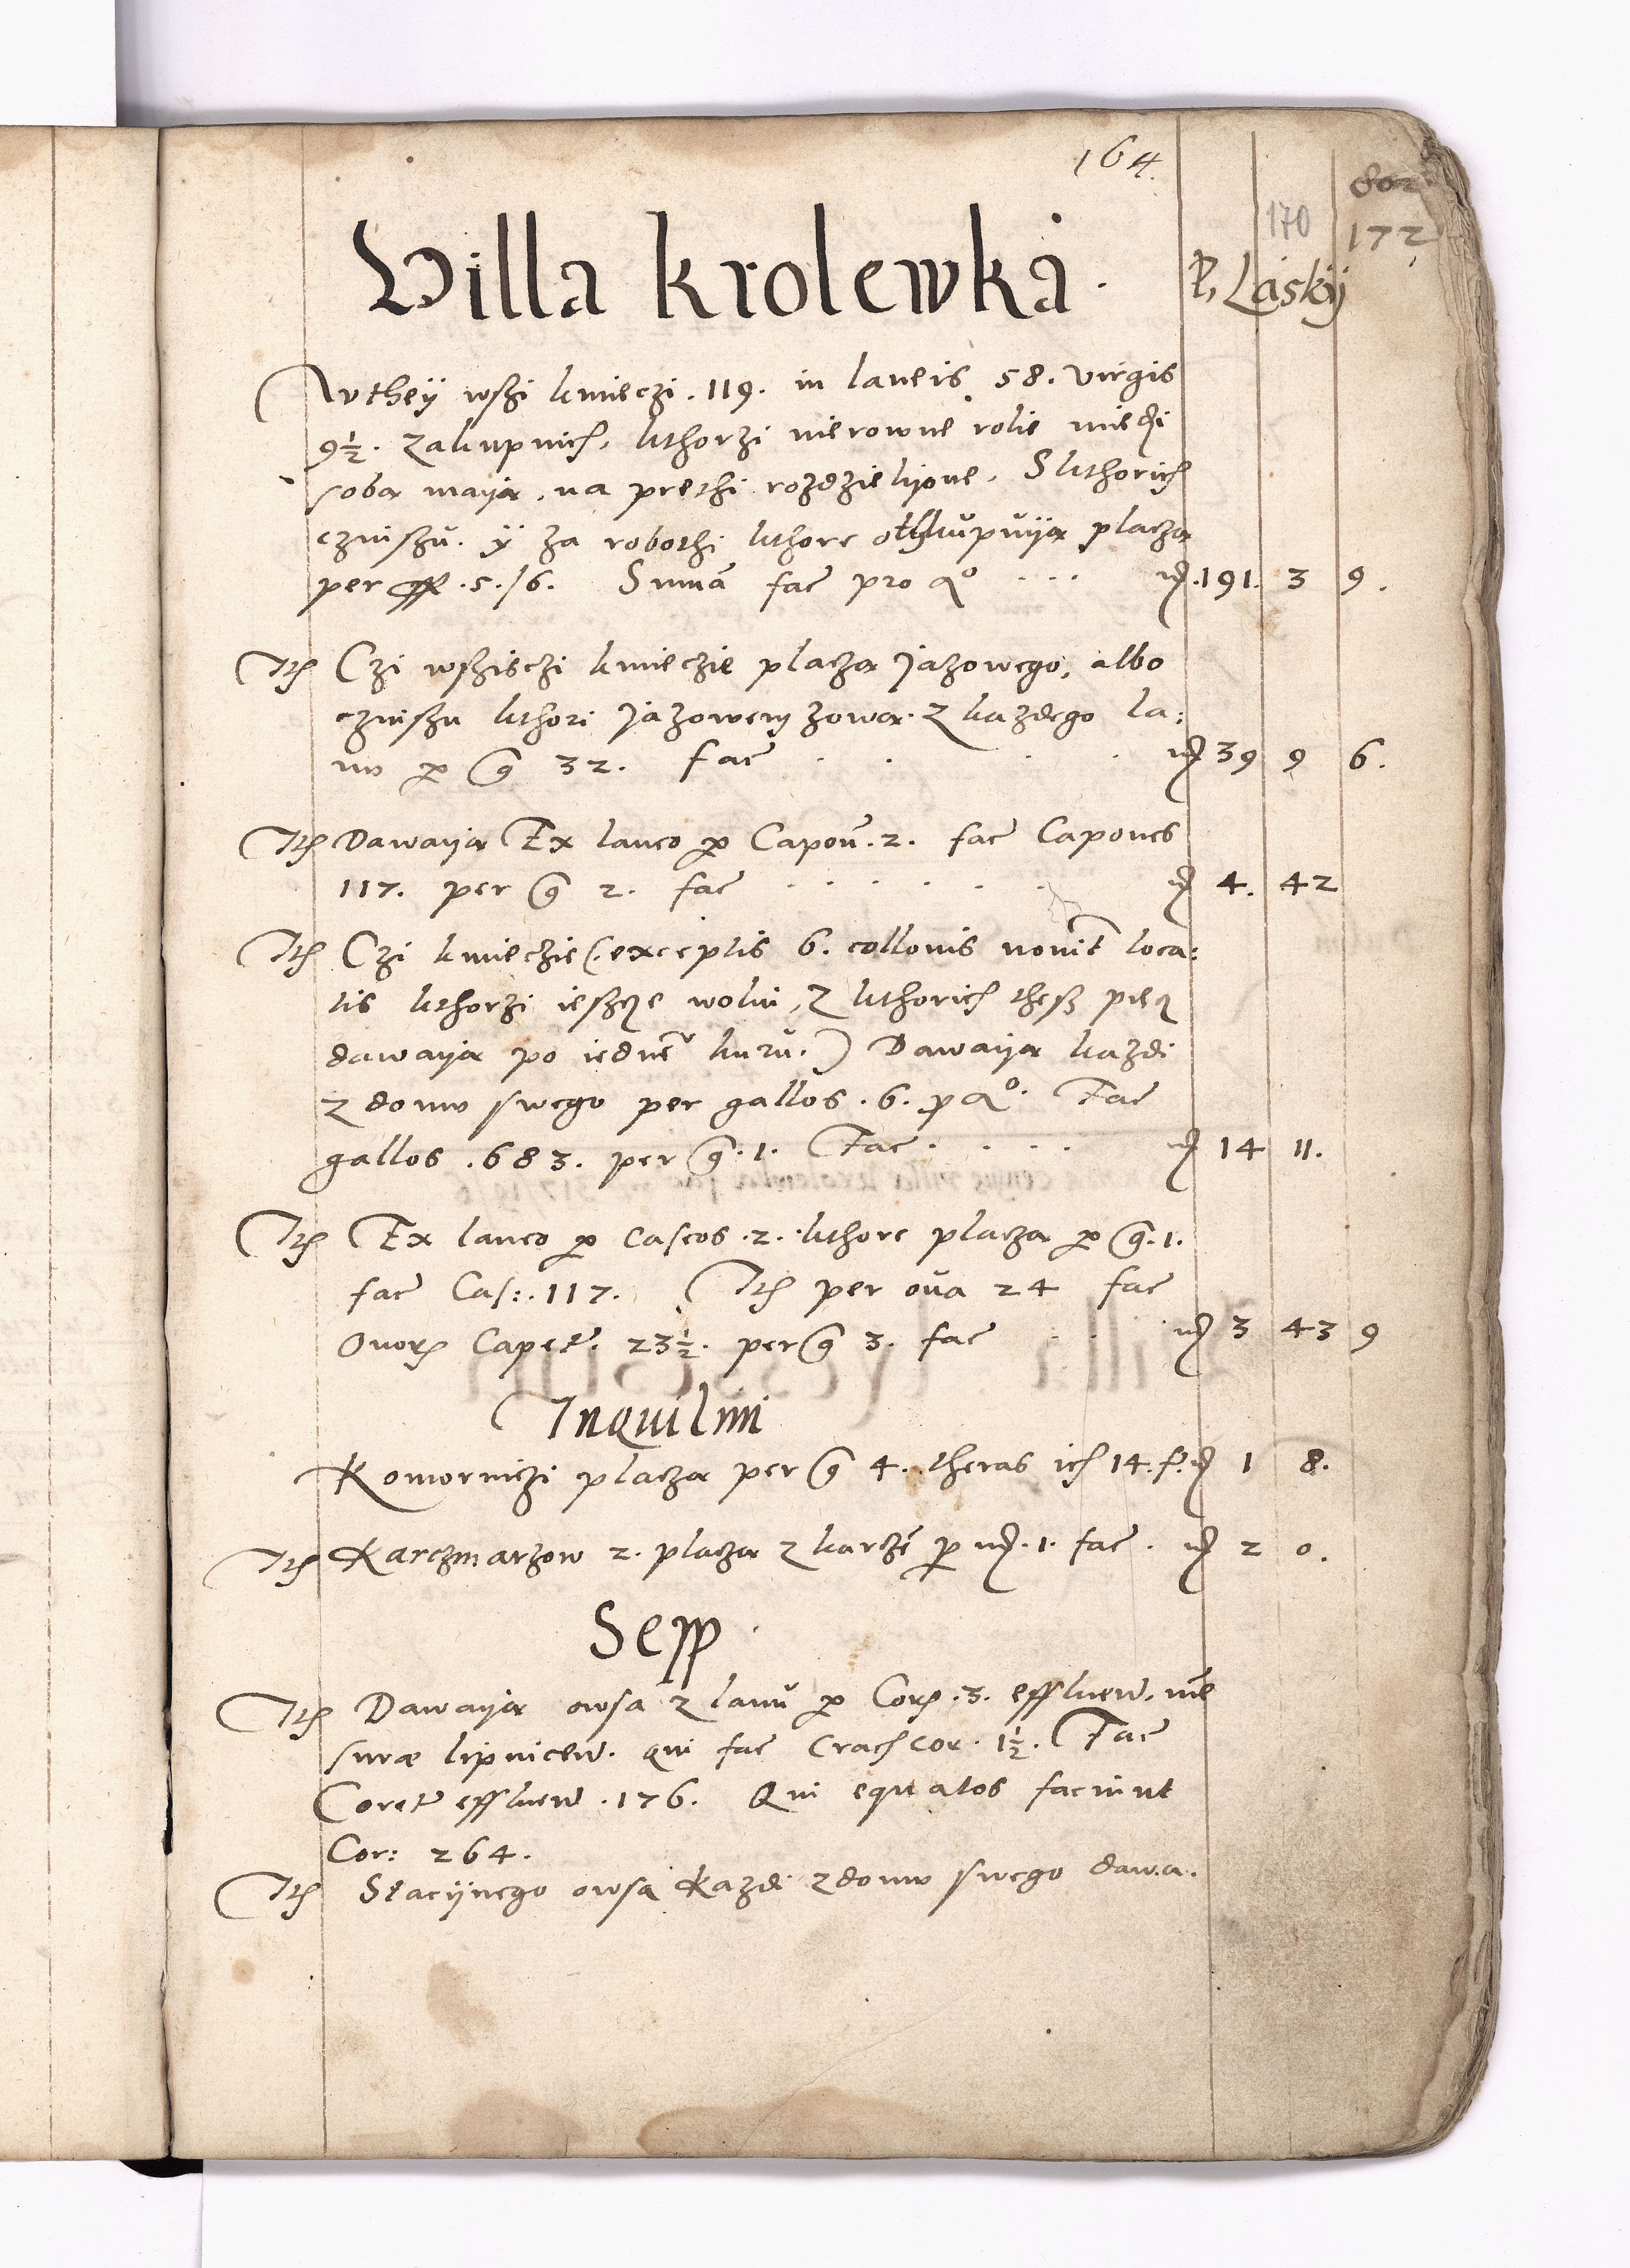 164.
802
170
172
Villa krolewka.
P. Laskij
W they wszi kmieczi .119. in laneis 58. virgis
9½. zakupnich, kthorzi nierowne rolie miedzi
soba maija, na prethi rozdzielijone, S kthorich
czinszu. ÿ za robothi kthore othkupuija placza
per gr .5./6. Sumā fac pro Ao .... 191. 3 9.
Ith Czi wszisczi kmieczie placza jazowego, albo
czinszu kthori jazowem zowa. z kazdego la:
nu p g 32. fac . . . . 39 9 6.
Ith Dawaija Ex laneo p Capoň. 2. fac Capones
117. per g 2. fac . . . . . . 4. 42
Ith Czi kmieczie (exceptis 6. collonis novit loca:
tis kthorzi iescze wolni, z kthorich thesz piecz
dawaija po iedne kuru.) Dawaija kazdi
z domu swego per gallos .6. p Ao. Fac
gallos .683. per g .1. Fac . . . . 14 11.
Ith Ex laneo p Caseos .2. kthore placza p g .1.
fac Cas: .117. Ith per oua 24 fac
Ouor Capet. 23½. per g 3. fac . . 3 43 9
Inquilini
Komorniczi placza per g 4. theras ich 14. f. 1 8.
Ith Karczmarzow 2. placza z karczē p .1. fac . 2 0.
Sepp
Ith Dawaija owsa z lanū p Cor .3. effluen. mē
suræ lipnicen. qui fac Crach cor. 1½. Fac
Coret effluen .176. Qui equatos faciunt
Cor: 264.
Ith Stacijnego owsa Kazdi z domu swego dawa.